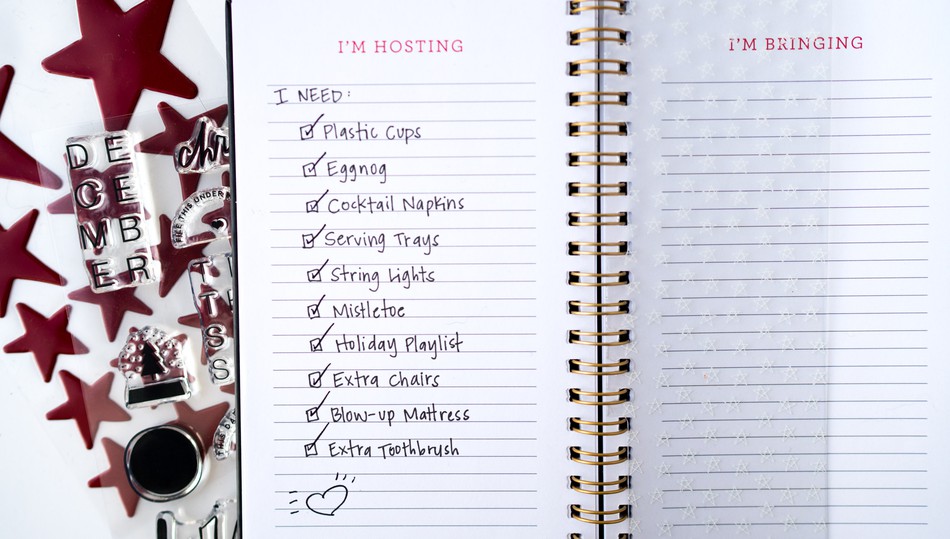 I'M HOSTING
I NEED:
Plastic Cups
Eggnog
Cocktail Napkins
Serving Trays
String Lights
Mistletoe
Holiday Playlist
Extra Chairs
Blow-up Mattress
Extra Toothbrush
I'M BRINGING
DE
CE
MB
ER
chr
FILE THIS UNDER